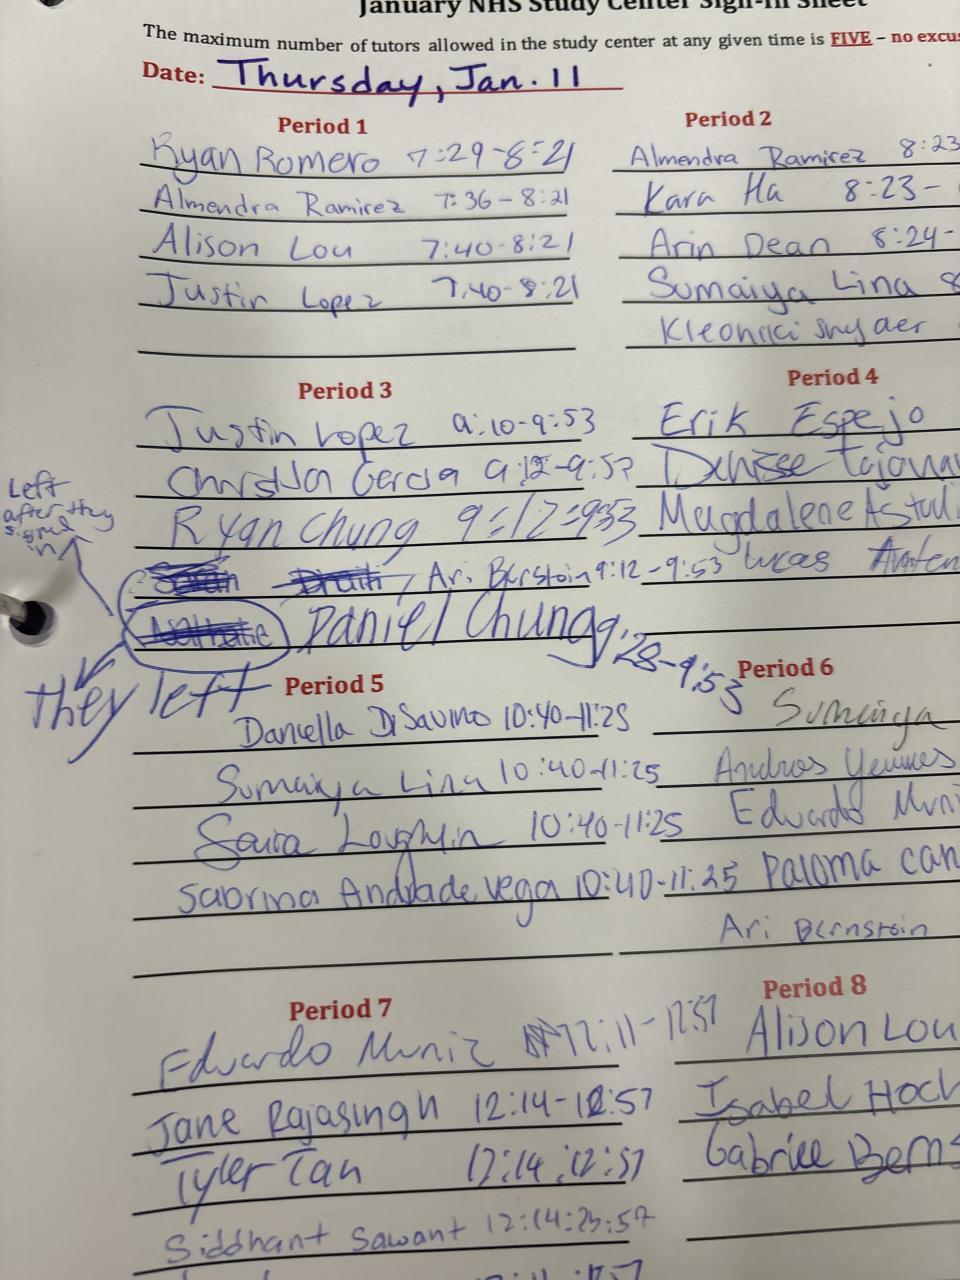 January NHS Study Center Sign-In Sheet
The maximum number of tutors allowed in the study center at any given time is FIVE – no excus
Date: Thursday, Jan. 11
Period 1
Ryan Romero 7:29-8:21
Almendra Ramirez 7:36-8:21
Alison Lou 7:40-8:21
Justin Lopez 7:40-8:21
Period 2
Almendra Ramirez 8:23
Kara Ha 8:23-
Arin Dean 8:24-
Sumaiya Lina 8
Kleoniki Snyder
Period 3
Justin Lopez 9:10-9:53
Garcia 9:12-9:53
Ryan Chung 9:12-9:53
Ari Bernstein 9:12-9:53
Daniel Chung 9:28-9:53
Left
after they
signed
in
They left
Period 4
Erik Espejo
Denisse
Magdalene Astudi
Lucas
Period 5
Daniella DiSavino 10:40-11:25
Sumaiya Lina 10:40-11:25
Saira Loughlin 10:40-11:25
Sabrina Andrade Vega 10:40-11:25
Period 6
Sumaiya
Andros
Eduardo Muni
Paloma Can
Ari Bernstein
Period 7
Eduardo Muniz 12:11-12:57
Jane Rajasingh 12:14-12:57
Tyler Tan 12:14:12:57
Siddhant Sawant 12:14:23:57
Period 8
Alison Lou
Isabel Hoch
Gabriele Berns